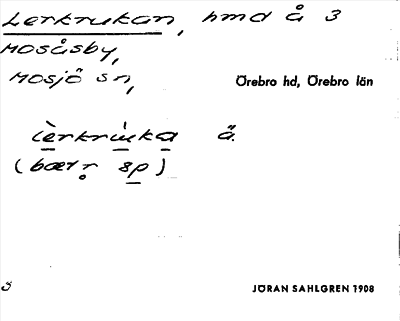 Lerkrukan, hmd å 3
Mosåsby,
Mosjö sn,
Örebro hd, Örebro län
lèrkrùka ä.
(bætr sp)
S
JÖRAN SAHLGREN 1908